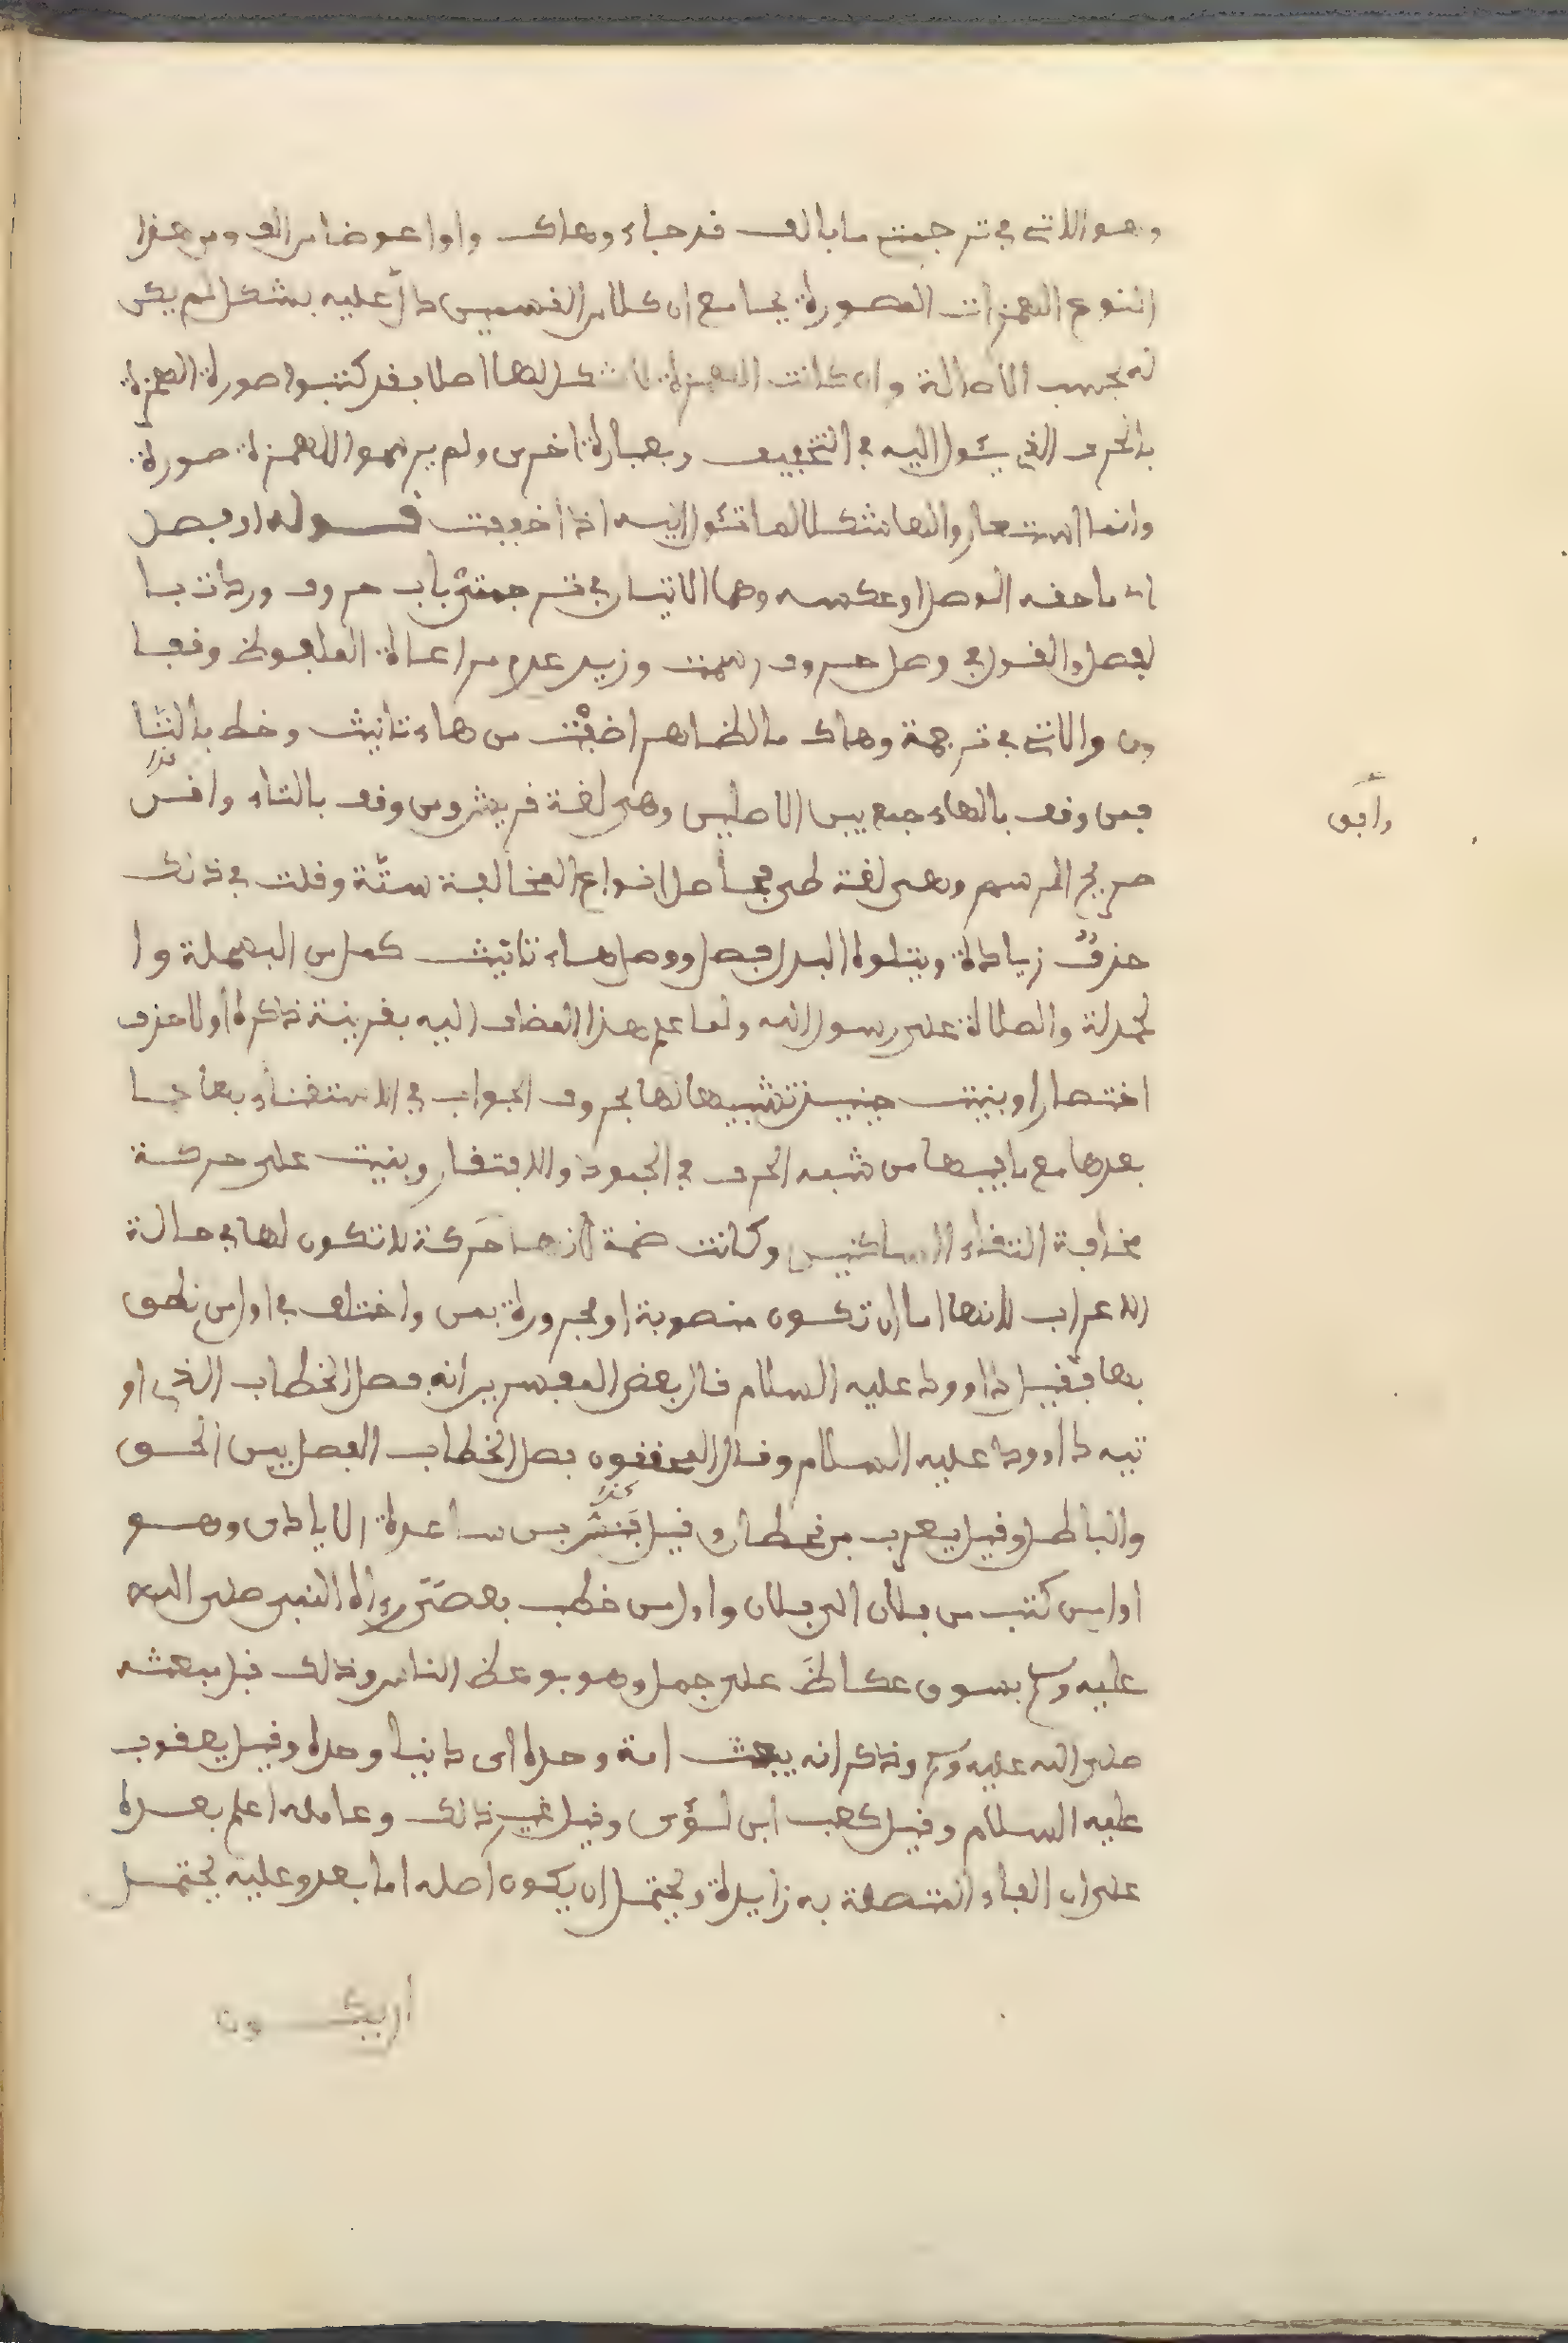 وهو الاتى في ترجمت ما بالف قد جاء وهاك واوا عوضا من الف ومن هذا
النوع الهمزات المصورة بجامع ان كلا من القسمين دال عليه بشكل لم يكن
له بحسب الاصالة وان كانت الهمزة لا شكل لها اصلا بقد كتبوا صورة الهمزة
بالحرف الذى يئول اليه في التخفيف وبعبارة اخرى ولم يرسموا للهمزة صورة
وانما استعاروا لها شكلا لما تئول اليه اذا خففت قوله او بصل
اى ما حقه الوصل او عكسه وهما الاتيان في ترجمتى باب حروف وردت با
لفصل والقول في وصل حروف رسمت وزيد عدم مراعاة الملفوظ وقفا
ون والاتى في ترجمة وهاك ما لظاهر اضفت من هاء تانيث وخط بالتا
فمن وقف بالهاء جمع بين الاصليين وهى لغة قريش ومن وقف بالتاء وافق
صريح الرسم وهى لغة طى فحاصل انواع المخالفة ستة وقلت في ذلك
حذف زيادة ويتلوه البدل فصل ووصل هاء تانيث كمل من البسملة وا
لحمدلة والصلاة على رسول الله ولما علم هذا المضاف اليه بقرينة ذكره اولا حذف
اختصارا وبنيت حينيذ تشبيها لها بحروف الجواب في الاستغناء بها عما
بعدها مع ما فيها من شبه الحرف في الجمود والافتقار وبنيت على حركة
مخافة التقاء الساكنين وكانت ضمة لانها حركة لا تكون لها في حالة
الاعراب لانها اما ان تكون منصوبة او مجرورة بمن واختلف في اول من نطق
بها فقيل داوود عليه السلام قال بعض المفسرين انه فصل الخطاب الذى او
تيه داوود عليه السلام وقال المحققون فصل الخطاب الفصل بين الحق
والباطل وقيل يعرب بن قحطان وقيل قس بن ساعدة الايادى وهو
اول من كتب من فلان الى فلان واول من خطب بعصى وراه النبى صلى الله
عليه وسلم بسوق عكاظ على جمل وهو يوعظ الناس وذلك قبل مبعثه
صلى الله عليه وسلم وذكر انه يبعث امة وحده اى دانيا وحده وقيل يعقوب
عليه السلام وقيل كعب ابن لؤى وقيل غير ذلك وعامله اعلم بعده
على ان الفاء المتصلة به زايدة ويحتمل ان يكون اصله اما بعد وعليه يحتمل
ان يكون
وافق